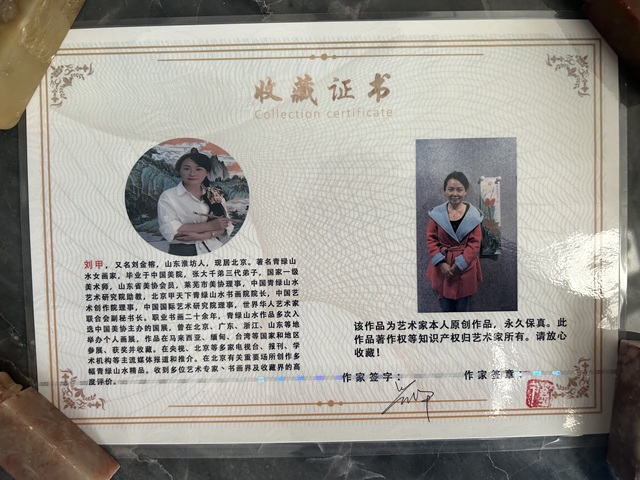 收藏证书
Collection certificate
刘甲，又名刘金榕，山东潍坊人，现居北京。著名青绿山
水女画家，毕业于中国美院，张大千弟三代弟子，国家一级
美术师，山东省美协会员，莱芜市美协理事，中国青绿山水
艺术研究院助教，北京甲天下青绿山水书画院院长，中国艺
术创作院理事，中国国际艺术研究院理事，世界华人艺术家
联合会副秘书长。职业书画二十余年，青绿山水作品多次入
选中国美协主办的国展，曾在北京、广东、浙江、山东等地
举办个人画展，作品在马来西亚、缅甸、台湾等国家和地区
参展、获奖并收藏。在央视、北京等多家电视台、报刊、学
术机构等主流媒体报道和推介。在北京有关重要场所创作多
幅青绿山水精品。收到多位艺术专家丶书画界及收藏界的高
度评价。
该作品为艺术家本人原创作品，永久保真。此
作品著作权等知识产权归艺术家所有。请放心
收藏！
作家签字：
作家签章：